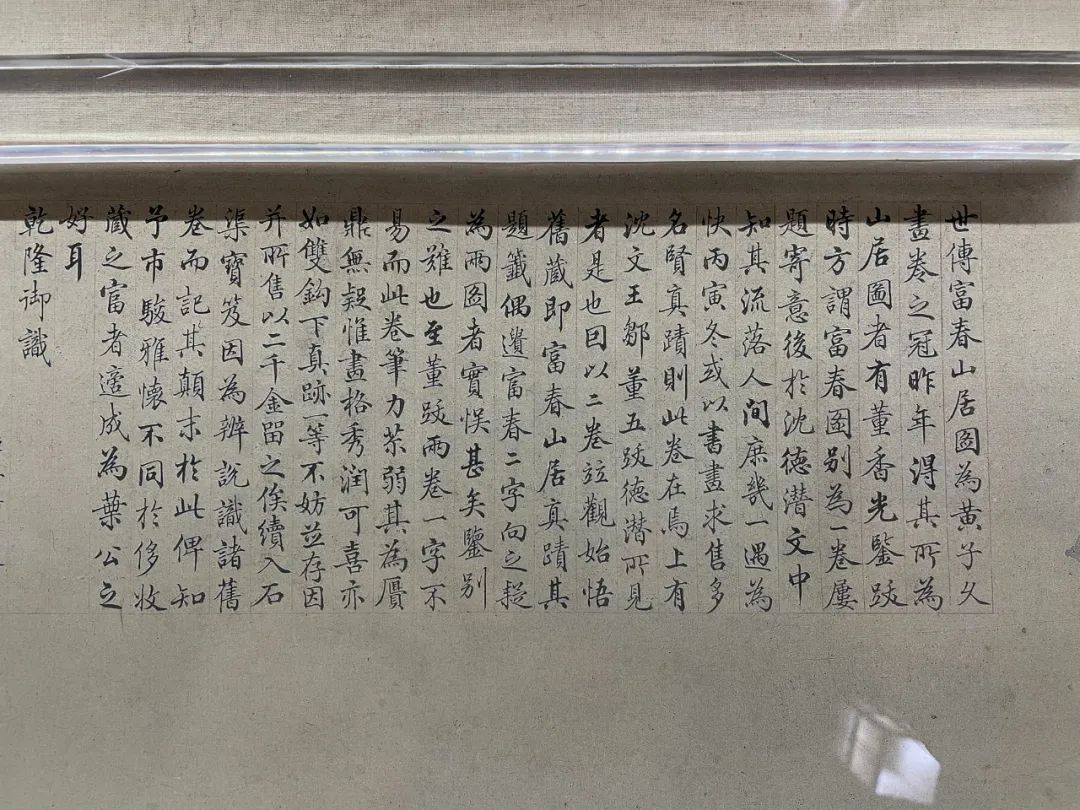 世傳富春山居圖為黃子久
畫卷之冠昨年得其所為
山居圖者有董香光鑒跋
時方謂富春圖别為一卷屢
題寄意後於沈德潛文中
知其流落人間庶幾一遇為
快丙寅冬或以書畫求售多
名賢真蹟則此卷在焉上有
沈文王鄒董五跋德潛所見
者是也因以二卷竝觀始悟
舊蔵即富春山居真蹟其
題籤偶遺富春二字向之疑
為兩圖者實悞甚矣鑒别
之難也至董跋兩卷一字不
易而此卷筆力苶弱其為贋
鼎無疑惟畫格秀潤可喜亦
如雙鈎下真跡一等不妨並存因
并所售以二千金留之俟續入石
渠寶笈因為辨說識諸舊
卷而記其顛末於此俾知
予市駿雅懷不同於侈收
蔵之富者適成為葉公之
好耳
乾隆御識